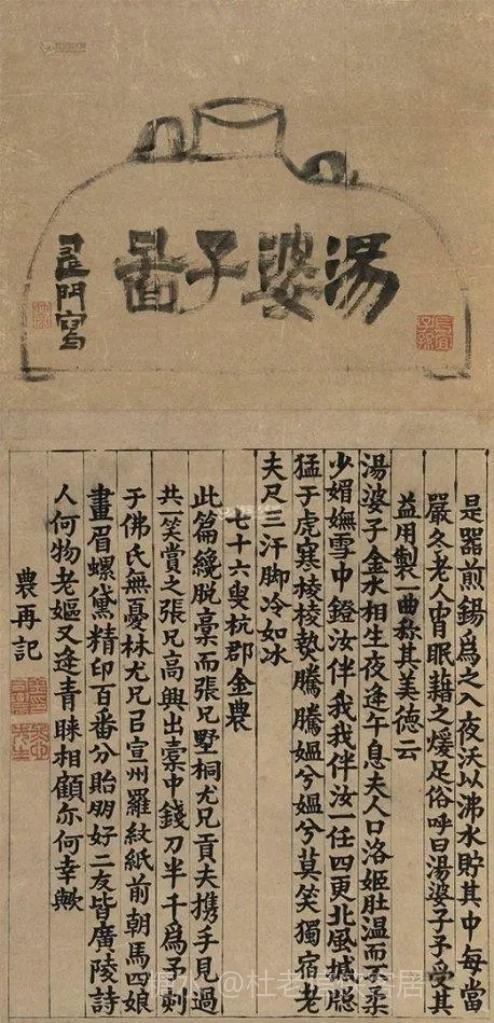 湯婆子圖
是器煎錫為之入夜沃以沸水貯其中每當
嚴冬老人宵眠藉之煖足俗呼曰湯婆子予受其
益用製一曲称其美德云
湯婆子金水相生夜逢午息夫人口洛姬肚温而不柔
少媚嫵雪中鐙汝伴我我伴汝一任四更北風摵牎
猛于虎寒棱棱埶騰騰媼兮媼兮莫笑獨宿老
夫尺三汗脚冷如冰
七十六叟杭郡金農
此篇纔脱藁而張兄墅桐尤兄貢夫携手見過
共一笑賞之張兄高興出橐中錢刀半千為予刺
于佛氏無憂林尤兄召宣州羅紋紙前朝馬四娘
畫眉螺黛精印百番分貽朋好二友皆廣陵詩
人何物老嫗又逢青睞相顧亦何幸歟
農再記